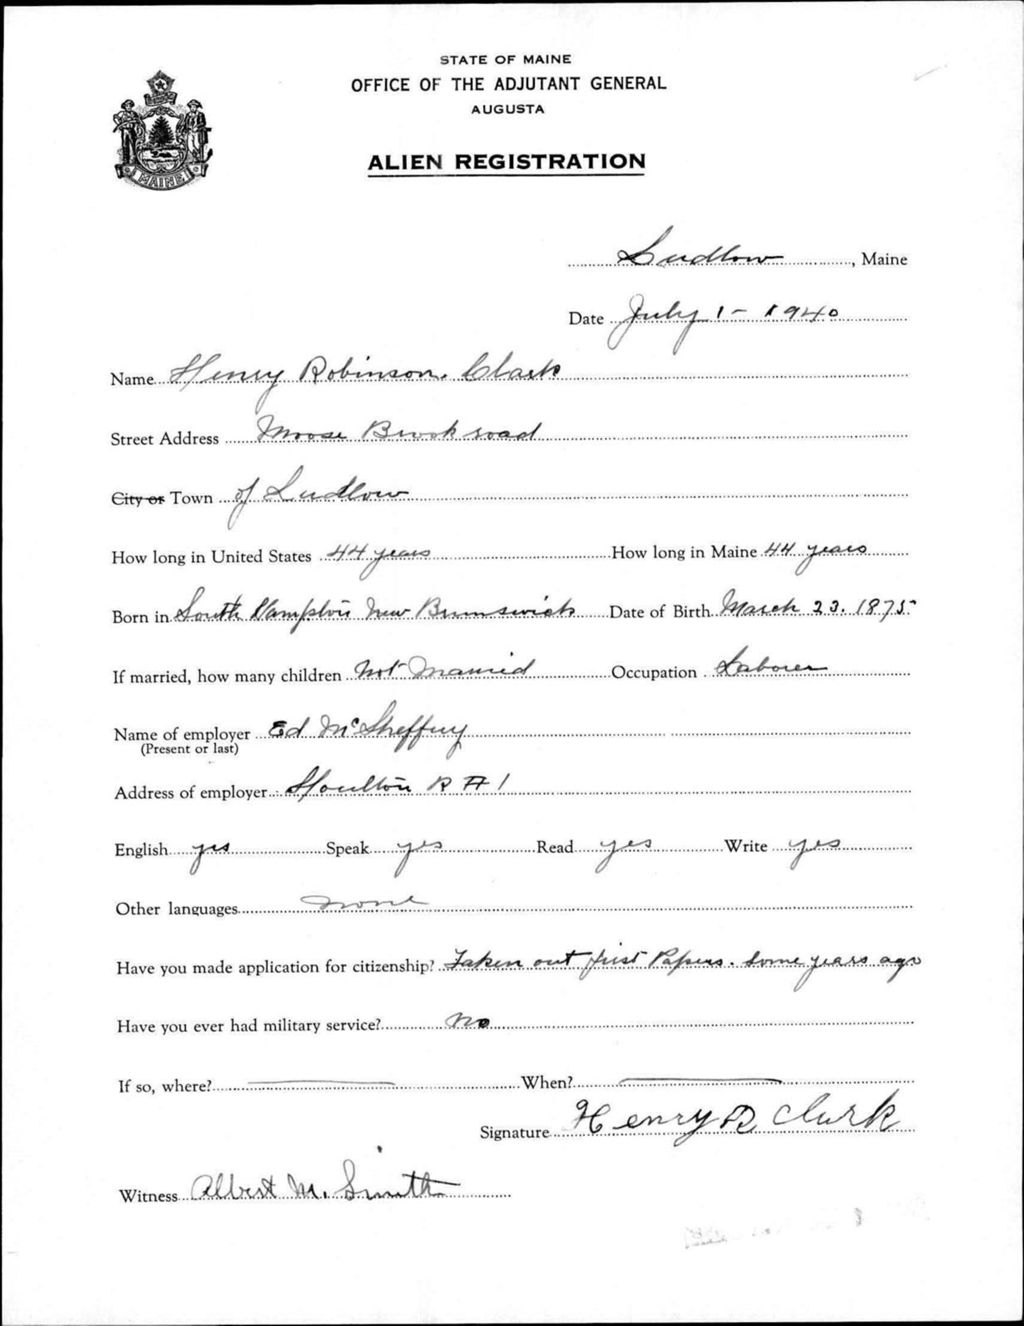 STATE OF MAINE
OFFICE OF THE ADJUTANT GENERAL
AUGUSTA
ALIEN REGISTRATION
MAINE
Ludlow, Maine
Date July 1 - 1940
Name Henry Robinson. Clark
Street Address Moose Brook road
City or Town of Ludlow
How long in United States 44 years How long in Maine 44 years
Born in South Hampton New Brunswick Date of Birth March 23. 1875
If married, how many children Not Married Occupation Laborer
Name of employer Ed McSheffery
(Present or last)
Address of employer Houlton R # 1
English yes Speak yes Read yes Write yes
Other languages none
Have you made application for citizenship? Taken out first Papers. Some years ago
Have you ever had military service? No
If so, where? When?
Signature Henry R Clark
Witness Albert M. Smith